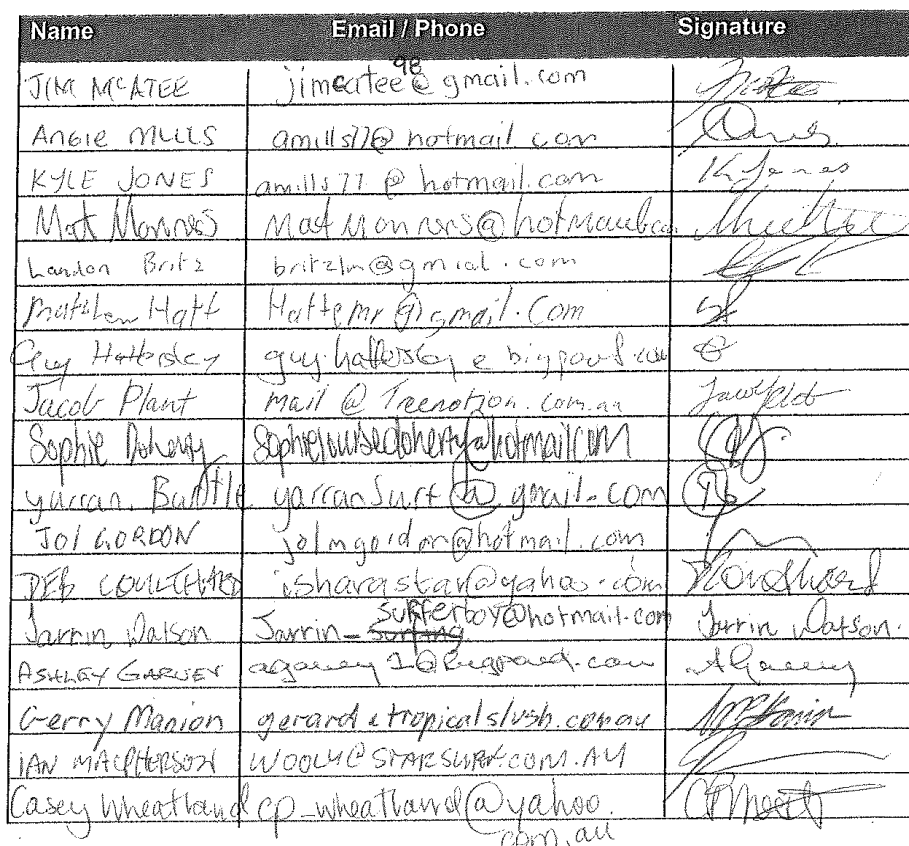 Name Email / Phone Signature
JIM McATEE jimcatee98@gmail.com
Angie MILLS amills77@hotmail.com
KYLE JONES amills77@hotmail.com K Jones
Mat Manners
Landon Britz britzlm@gmial.com
Matthew Hatt Hattemr@gmail.com
Guy Hattersley guy.hattersley e bigpond.com
Jacob Plant mail @ Treenotion.com.au
Sophie Doherty Sophielouisedoherty@hotmail.com
yarran. yarransurf@gmail.com
JOL GORDON jolmgordon@hotmail.com
DEB COULTHARD isharastar@yahoo.com
Jarrin Watson Jarrin_surferboy@hotmail.com Jarrin Watson.
ASHLEY GARVEY agarvey1@bigpond.com AGarvey
Gerry Manion gerard e tropicalslush.com.au
IAN MACPHERSON WOOLY@STARSURF.COM.AU
Casey Wheatland cp_wheatland@yahoo.
com.au